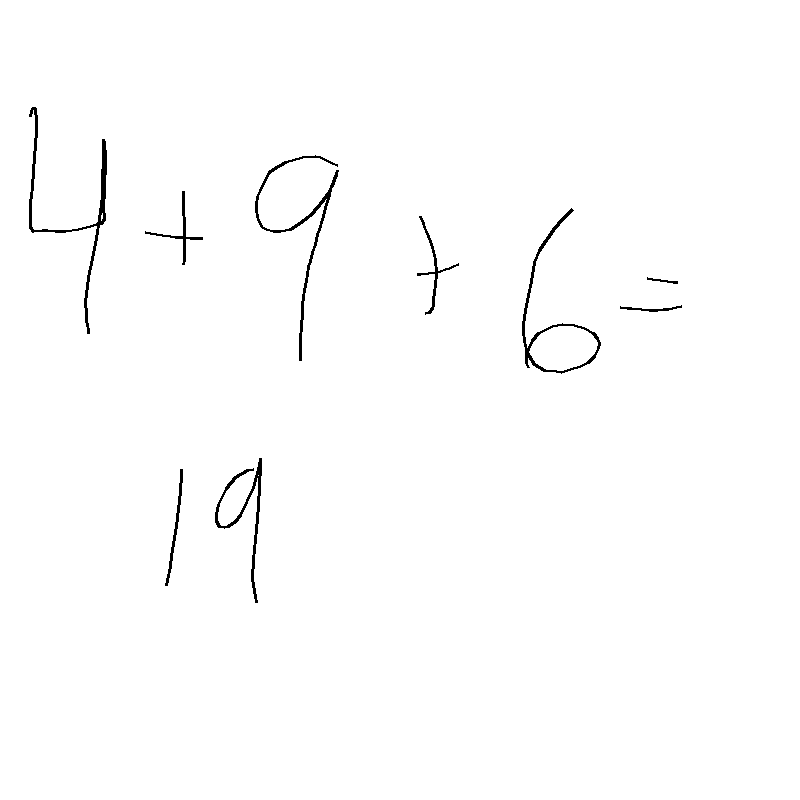 4 + 9 + 6 =
19